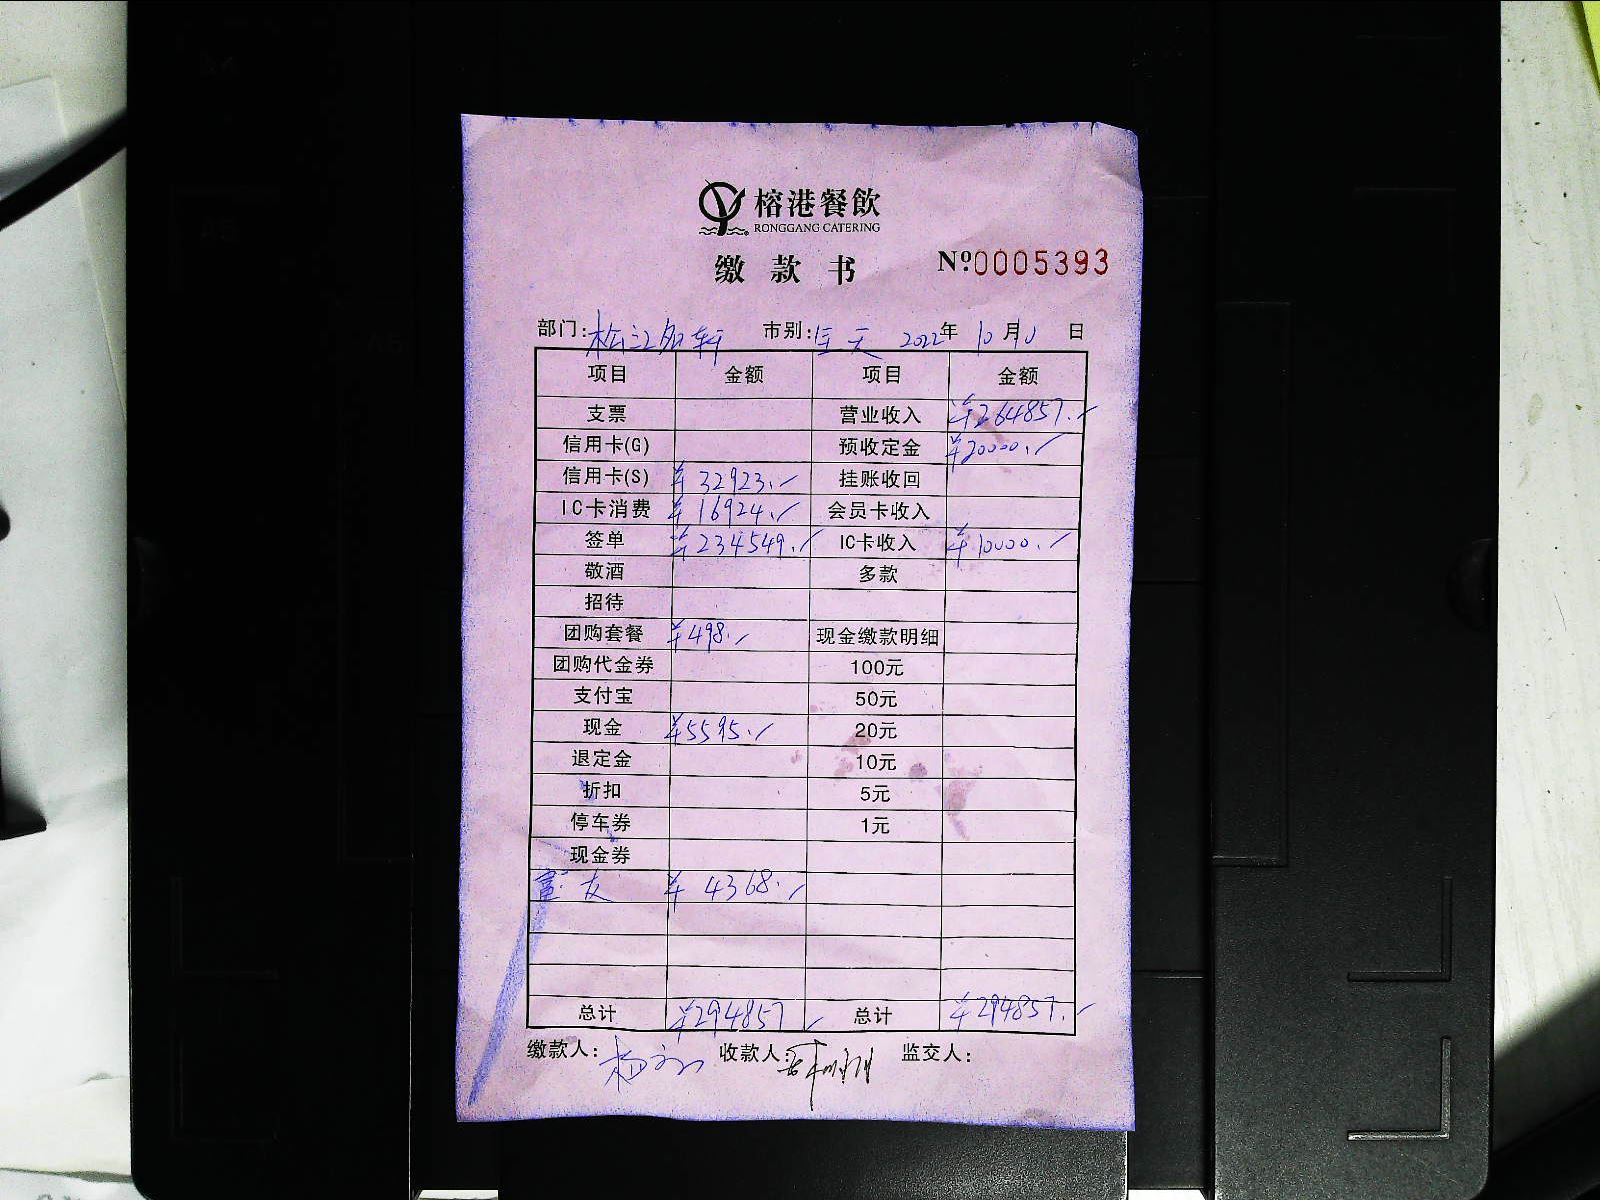 榕港餐飲
RONGGANG CATERING
缴款书 №0005393
部门: 松江名轩 市别: 全天 2022年 10月 1日
项目 金额 项目 金额
支票 营业收入 ¥264857.
信用卡(G) 预收定金 ¥20000.
信用卡(S) ¥32923. 挂账收回
IC卡消费 ¥16924. 会员卡收入
签单 ¥234549. IC卡收入 ¥10000.
敬酒 多款
招待
团购套餐 ¥498. 现金缴款明细
团购代金券 100元
支付宝 50元
现金 ¥5595. 20元
退定金 10元
折扣 5元
停车券 1元
现金券
富友 ¥4368.
总计 ¥294857 总计 ¥294857.
缴款人: 收款人: 监交人: